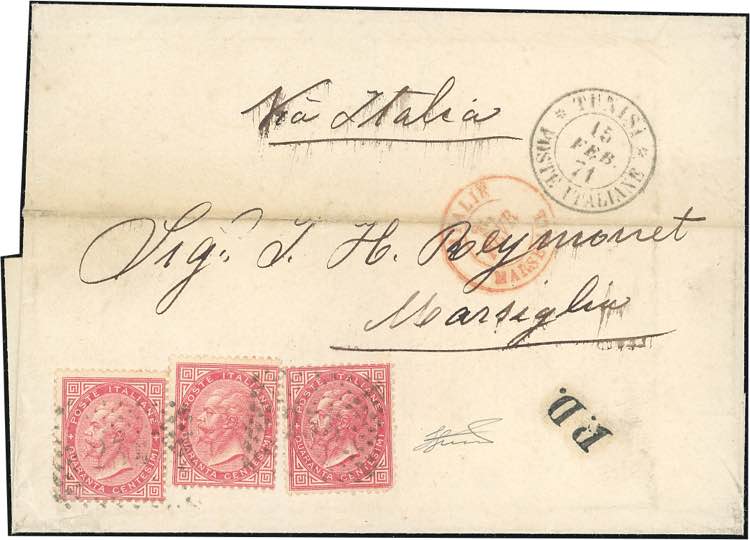 Via Italia
* TUNISI *
POSTE ITALIANE
15
FEB.
71
MARSE
Sig. J. H. Reymonet
Marsiglia
P.D.
POSTE ITALIANE
QUARANTA CENTESIMI
POSTE ITALIANE
QUARANTA CENTESIMI
POSTE ITALIANE
QUARANTA CENTESIMI